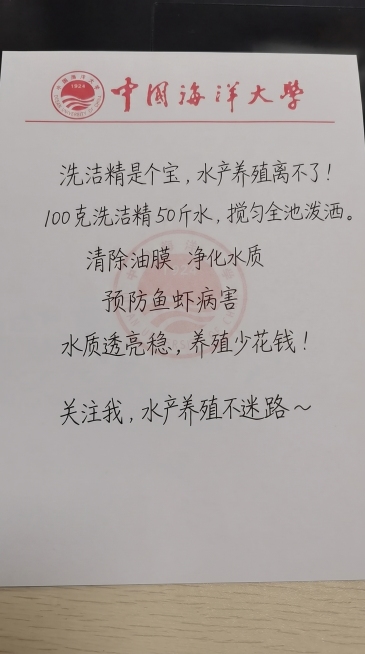 中国海洋大学
1924
洗洁精是个宝，水产养殖离不了！
100克洗洁精50斤水，搅匀全池泼洒。
清除油膜 净化水质
预防鱼虾病害
水质透亮稳，养殖少花钱！
关注我，水产养殖不迷路～